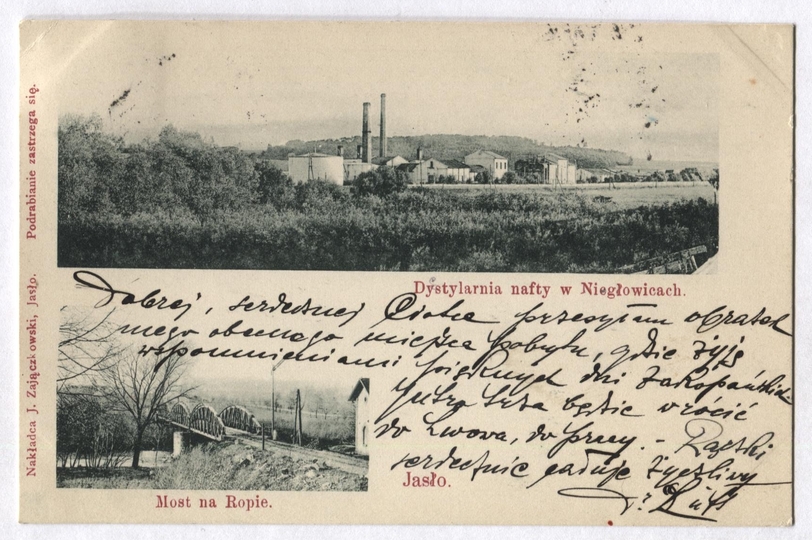 Nakładca J. Zajączkowski, Jasło. Podrabianie zastrzega się.
Dystylarnia nafty w Niegłowicach.
Dobrej, serdecznej Ciotce przesyłam obrazek
mego obecnego miejsca pobytu, gdzie żyję
wspomnieniami pięknych dni Zakopańskich
Jutro trza będzie wrócić
do Lwowa, do pracy. - Rączki
serdecznie całuje życzliwy
Jasło.
Most na Ropie.